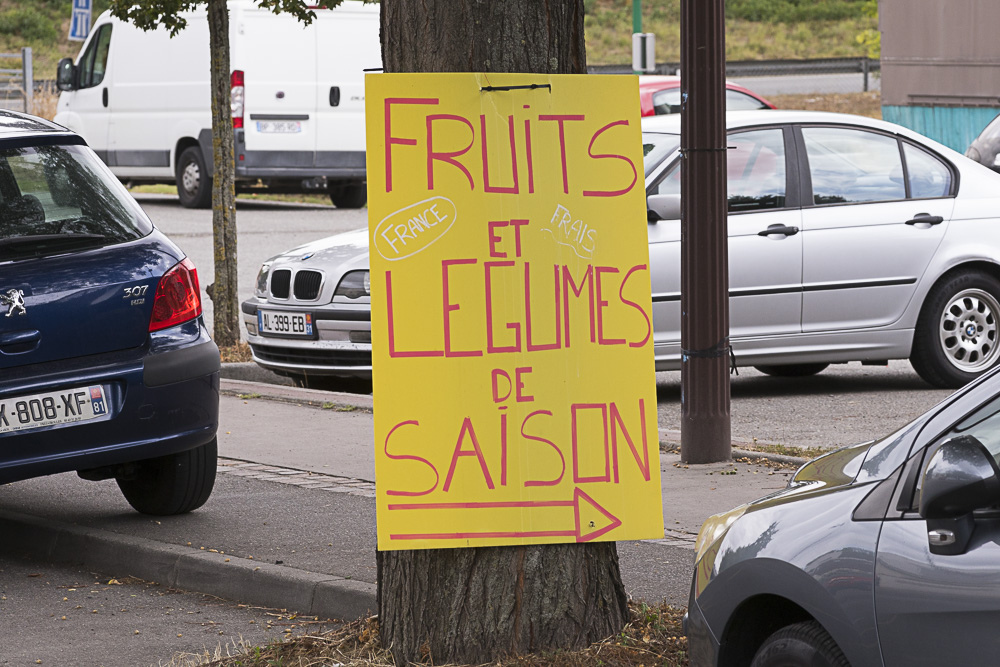 FRUiTS
FRANCE
ET
FRAIS
LEGUMES
DE
SAiSON
307
AL-399-EB
-808-XF
81